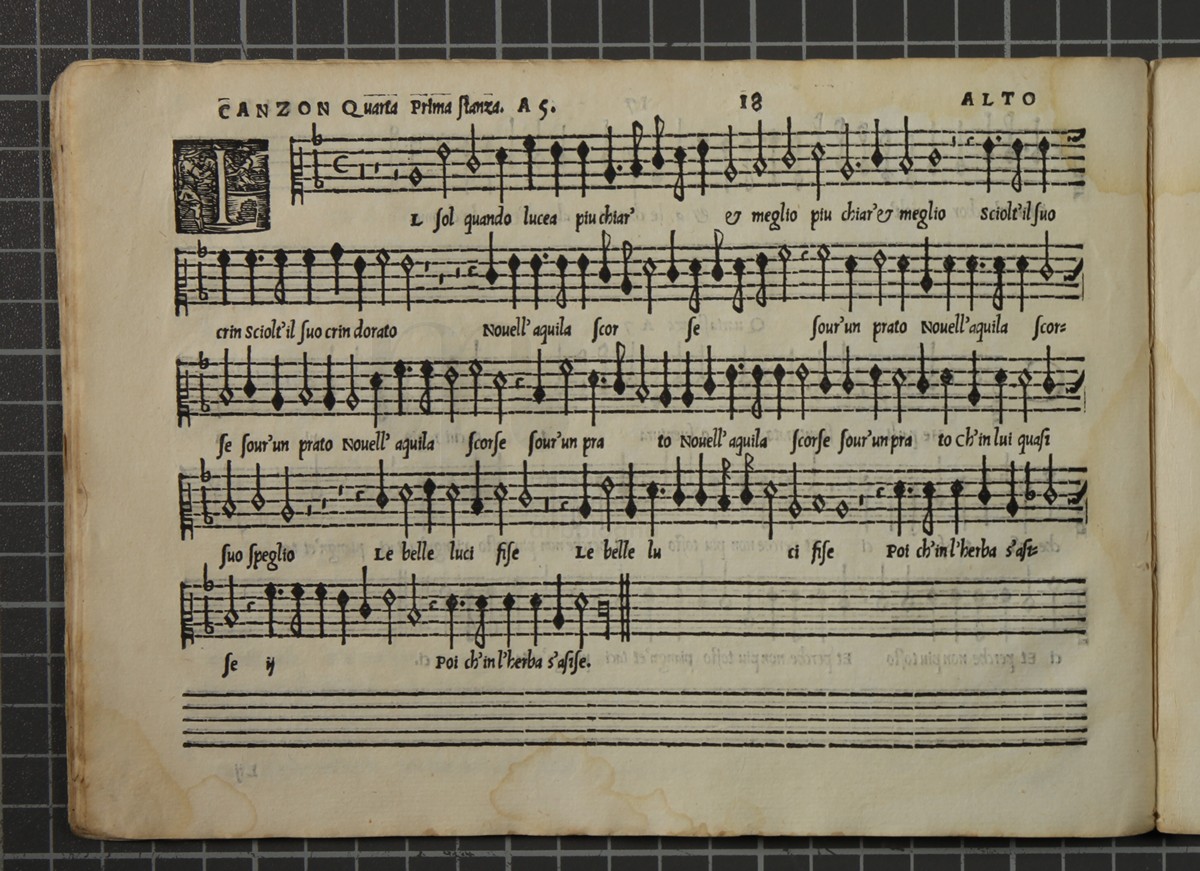 CANZON Quarta Prima stanza. A 5. 18 ALTO
I L sol quando lucea piu chiar' & meglio piu chiar' & meglio Sciolt'il suo
crin Sciolt'il suo crin dorato Nouell' aquila scor se sour'un prato Nouell' aquila scor=
se sour'un prato Nouell' aquila scorse sour'un pra to Nouell' aquila scorse sour'un pra to Ch'in lui quasi
suo speglio Le belle luci fise Le belle lu ci fise Poi ch'in l'herba s'asi=
se ij Poi ch'in l'herba s'asise.